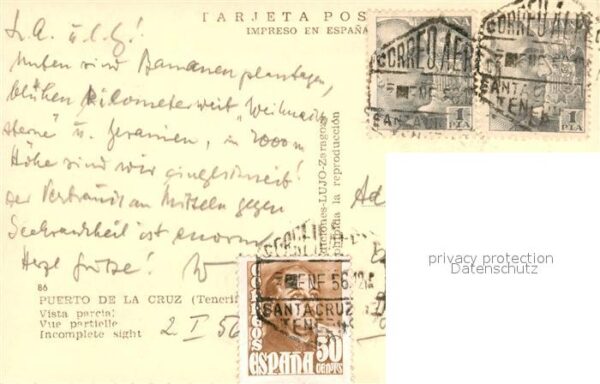 TARJETA POS
IMPRESO EN ESPAÑA
L. A. u. l. G.!
unten sind Bananenplantagen,
blühen kilometerweit "Weihnachts
sterne" u. Geranien, in 2000 m
Höhe sind wir eingeschneit!
Der Verbrauch an Mitteln gegen
Seekrankheit ist enorm
Herzl Grüsse! W
86
PUERTO DE LA CRUZ (Tenerif
Vista parcial
Vue partielle
Incomplete sight
2 I 56
ciones-LUJO-Zaragoza
ohibida la reproducción
Ad
CORREO AER
ENE 56
SANTA CRUZ
TENER
1
PTA
CORREO AER
ENE 56
SANTA CRUZ
TENER
1
PTA
ENE 56.12
SANTA CRUZ
TENER
CORREOS
ESPAÑA
50
CENTS
privacy protection
Datenschutz